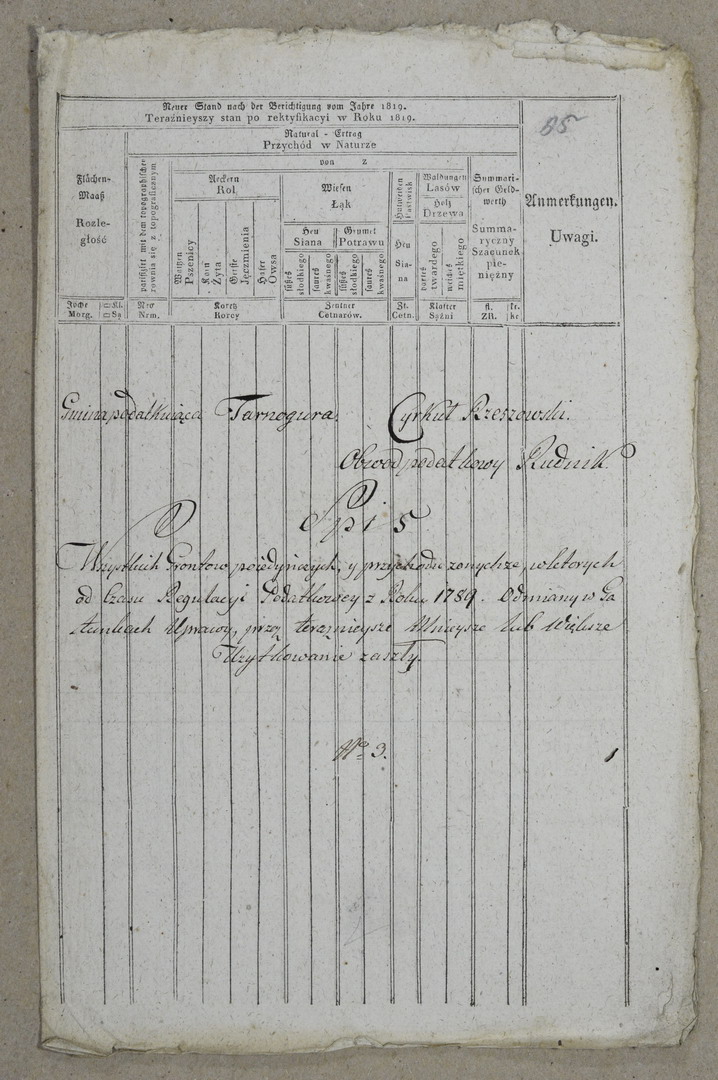 Neuer Stand nach der Berichtigung vom Jahre 1819.
Teraźnieyszy stan po rektyfikacyi w Roku 1819.
Natural - Ertrag
Przychód w Naturze
von z
Flächen-
Maaß
Rozle-
głość
parifizirt mit dem topographischen
rownia się z topograficznym
Aeckern
Rol
Waitzen
Pszenicy
Korn
Żyta
Gerste
Jęczmienia
Hafer
Owsa
Wiesen
Łąk
Heu
Siana
Grumet
Potrawu
süßes
słodkiego
saures
kwaśnego
süßes
słodkiego
saures
kwaśnego
Hutweiden
Pastwisk
Heu
Sia-
na
Waldungen
Lasów
Holz
Drzewa
hartes
twardego
weiches
miętkiego
Summari-
scher Geld-
werth
Summa-
ryczny
Szacunek
pie-
niężny
Anmerkungen.
Uwagi.
Joche
Morg.
□ Kl.
□ Są
Nro
Nrm.
Koretz
Korcy
Zentner
Cetnarów.
Zt.
Cetn.
Klafter
Sążni
fl.
Zlt.
kr.
kr
Gmina podatkuiąca Tarnogura. Cyrkuł Rzeszowski.
Obwod podatkowy Rudnik.
Spis
Wszystkich Grontow poiedyńczych, y przychodu z onychże, w ktorych
od Czasu Regulacyi Podatkowey z Roku 1789. Odmiany w Ga
tunkach Uprawy, przez teraźnieysze Mnieysze lub Większe
Użytkowanie zaszły.
No 3.
1